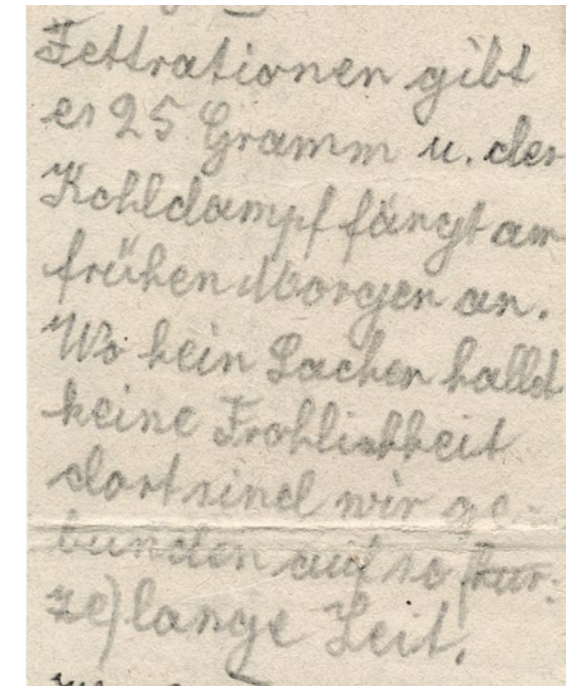 Fettrationen gibt
es 25 Gramm u. der
Kohldampf fängt am
frühen Morgen an.
Wo kein Lachen hallet
keine Frohlichkeit
dort sind wir ge-
bunden auf so (kur-
ze) lange Zeit.